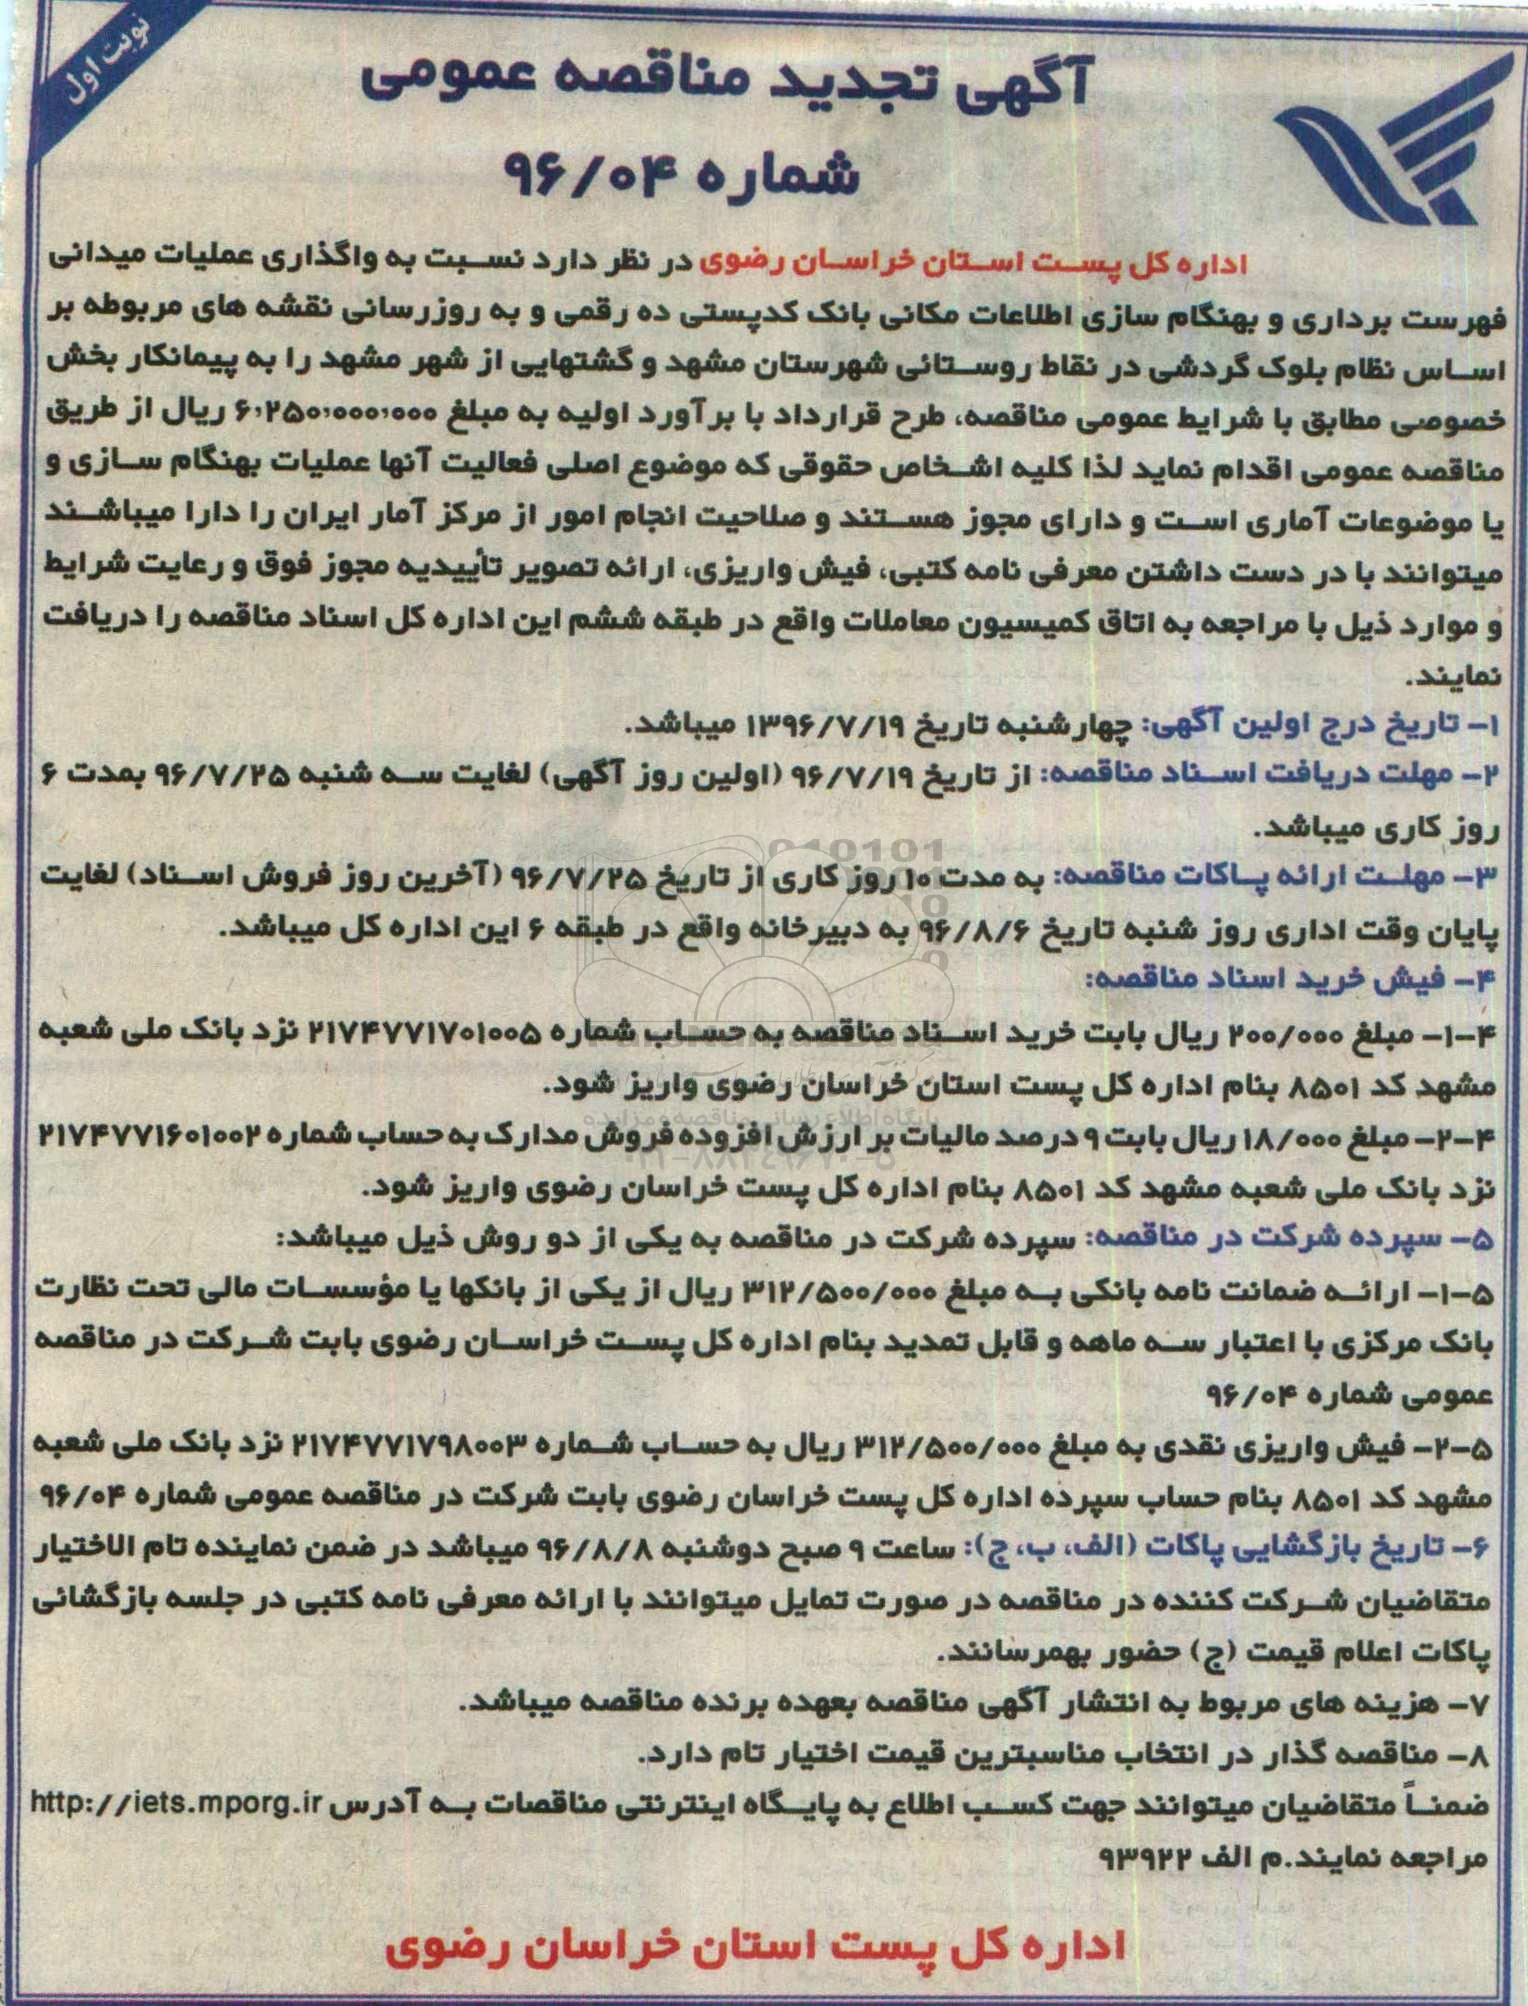 نوبت اول
آگهی تجدید مناقصه عمومی
شماره ۹۶/۰۴
اداره کل پست استان خراسان رضوی در نظر دارد نسبت به واگذاری عملیات میدانی
فهرست برداری و بهنگام سازی اطلاعات مکانی بانک کدپستی ده رقمی و به روزرسانی نقشه های مربوطه بر
اساس نظام بلوک گردشی در نقاط روستائی شهرستان مشهد و گشتهایی از شهر مشهد را به پیمانکار بخش
خصوصی مطابق با شرایط عمومی مناقصه، طرح قرارداد با برآورد اولیه به مبلغ ۶،۲۵۰،۰۰۰،۰۰۰ ریال از طریق
مناقصه عمومی اقدام نماید لذا کلیه اشخاص حقوقی که موضوع اصلی فعالیت آنها عملیات بهنگام سازی و
یا موضوعات آماری است و دارای مجوز هستند و صلاحیت انجام امور از مرکز آمار ایران را دارا میباشند
میتوانند با در دست داشتن معرفی نامه کتبی، فیش واریزی، ارائه تصویر تأییدیه مجوز فوق و رعایت شرایط
و موارد ذیل با مراجعه به اتاق کمیسیون معاملات واقع در طبقه ششم این اداره کل اسناد مناقصه را دریافت
نمایند.
۱- تاریخ درج اولین آگهی: چهارشنبه تاریخ ۱۳۹۶/۷/۱۹ میباشد.
۲- مهلت دریافت اسناد مناقصه: از تاریخ ۹۶/۷/۱۹ (اولین روز آگهی) لغایت سه شنبه ۹۶/۷/۲۵ بمدت ۶
روز کاری میباشد.
۳- مهلت ارائه پاکات مناقصه: به مدت ۱۰ روز کاری از تاریخ ۹۶/۷/۲۵ (آخرین روز فروش اسناد) لغایت
پایان وقت اداری روز شنبه تاریخ ۹۶/۸/۶ به دبیرخانه واقع در طبقه ۶ این اداره کل میباشد.
۴- فیش خرید اسناد مناقصه:
۴-۱- مبلغ ۲۰۰/۰۰۰ ریال بابت خرید اسناد مناقصه به حساب شماره ۲۱۷۴۷۷۱۷۰۱۰۰۵ نزد بانک ملی شعبه
مشهد کد ۸۵۰۱ بنام اداره کل پست استان خراسان رضوی واریز شود.
پایگاه اطلاع رسانی مناقصه و مزایده
۴-۲- مبلغ ۱۸/۰۰۰ ریال بابت ۹ درصد مالیات بر ارزش افزوده فروش مدارک به حساب شماره ۲۱۷۴۷۷۱۶۰۱۰۰۲
نزد بانک ملی شعبه مشهد کد ۸۵۰۱ بنام اداره کل پست خراسان رضوی واریز شود.
۵- سپرده شرکت در مناقصه: سپرده شرکت در مناقصه به یکی از دو روش ذیل میباشد:
۵-۱- ارائه ضمانت نامه بانکی به مبلغ ۳۱۲/۵۰۰/۰۰۰ ریال از یکی از بانکها یا مؤسسات مالی تحت نظارت
بانک مرکزی با اعتبار سه ماهه و قابل تمدید بنام اداره کل پست خراسان رضوی بابت شرکت در مناقصه
عمومی شماره ۹۶/۰۴
۵-۲- فیش واریزی نقدی به مبلغ ۳۱۲/۵۰۰/۰۰۰ ریال به حساب شماره ۲۱۷۴۷۷۱۷۹۸۰۰۳ نزد بانک ملی شعبه
مشهد کد ۸۵۰۱ بنام حساب سپرده اداره کل پست خراسان رضوی بابت شرکت در مناقصه عمومی شماره ۹۶/۰۴
۶- تاریخ بازگشایی پاکات (الف، ب، ج): ساعت ۹ صبح دوشنبه ۹۶/۸/۸ میباشد در ضمن نماینده تام الاختیار
متقاضیان شرکت کننده در مناقصه در صورت تمایل میتوانند با ارائه معرفی نامه کتبی در جلسه بازگشائی
پاکات اعلام قیمت (ج) حضور بهمرسانند.
۷- هزینه های مربوط به انتشار آگهی مناقصه بعهده برنده مناقصه میباشد.
۸- مناقصه گذار در انتخاب مناسبترین قیمت اختیار تام دارد.
ضمناً متقاضیان میتوانند جهت کسب اطلاع به پایگاه اینترنتی مناقصات به آدرس http://iets.mporg.ir
مراجعه نمایند.م الف ۹۳۹۲۲
اداره کل پست استان خراسان رضوی